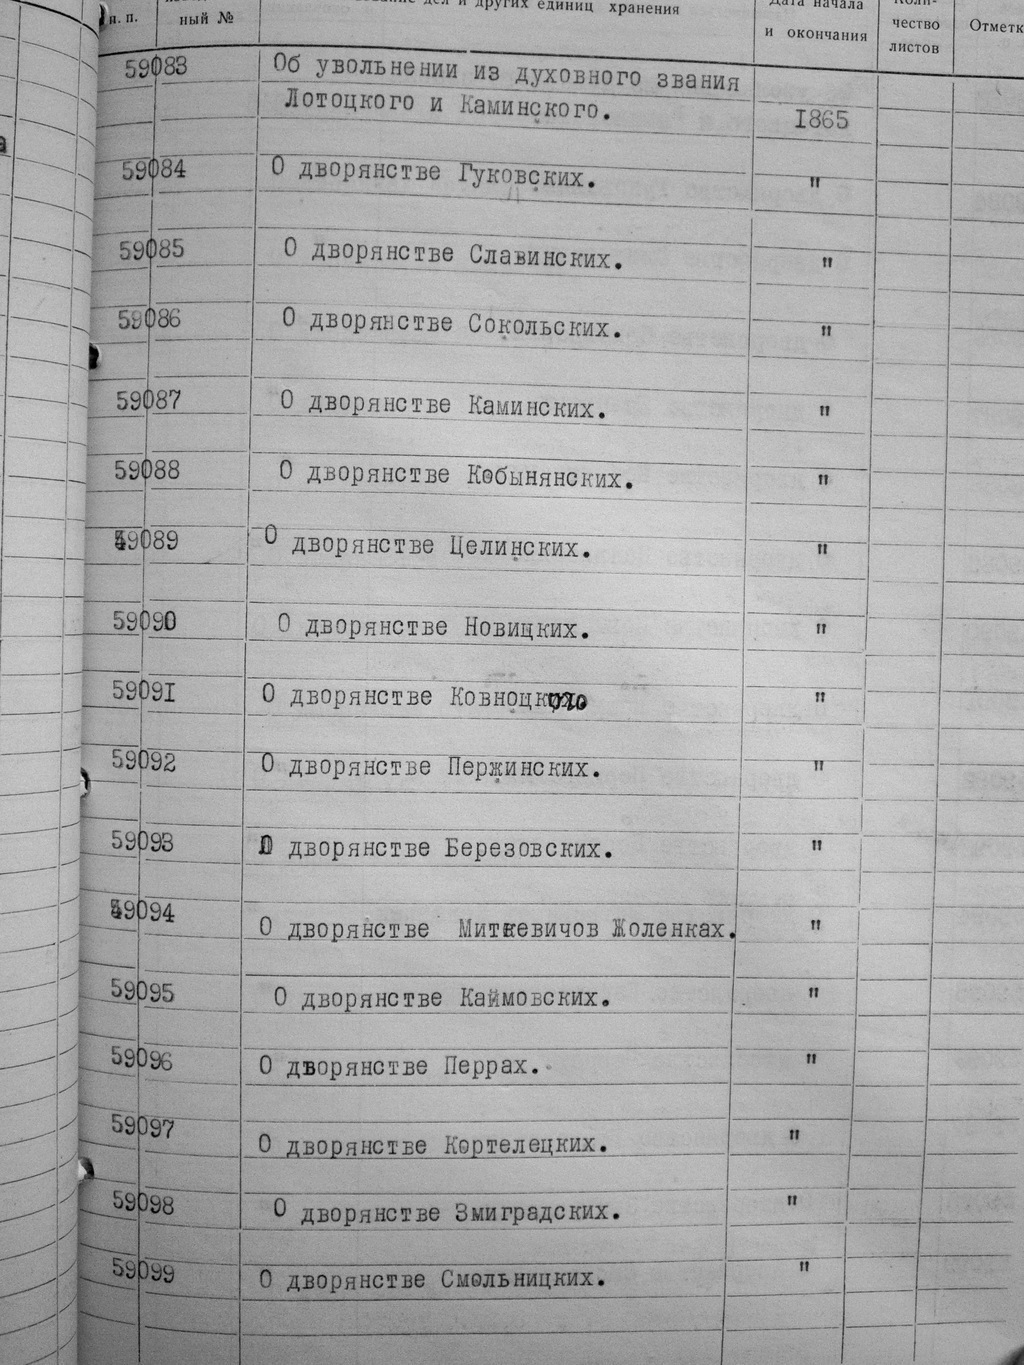 п. п.
ный №
дел и других единиц хранения
Дата начала
и окончания
Коли-
чество
листов
59083 Об увольнении из духовного звания
Лотоцкого и Каминского. 1865
59084 О дворянстве Гуковских. "
59085 О дворянстве Славинских. "
59086 О дворянстве Сокольских. "
59087 О дворянстве Каминских. "
59088 О дворянстве Кобынянских. "
59089 О дворянстве Целинских. "
59090 О дворянстве Новицких. "
59091 О дворянстве Ковноцкого "
59092 О дворянстве Пержинских. "
59093 О дворянстве Березовских. "
59094 О дворянстве Миткевичов Жоленках. "
59095 О дворянстве Каймовских. "
59096 О дворянстве Перрах. "
59097 О дворянстве Кортелецких. "
59098 О дворянстве Змиградских. "
59099 О дворянстве Смольницких. "